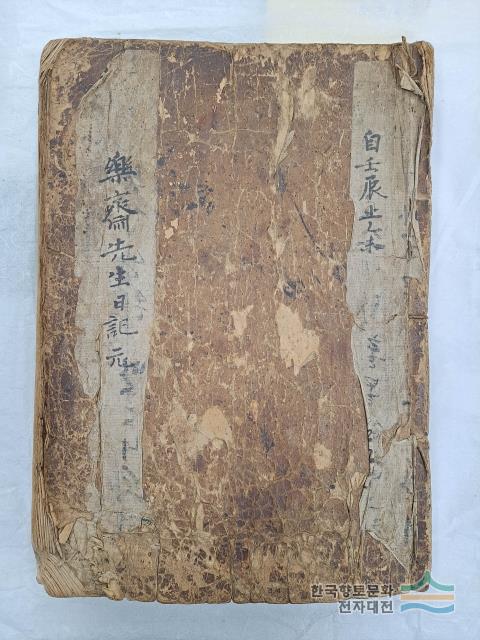 自壬辰止乙未
樂齋先生日記 元
한국향토문화
전자대전